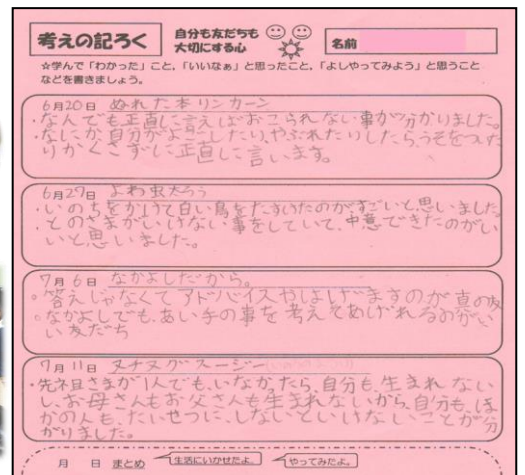 考えの記ろく
自分も友だちも
大切にする心
名前
☆学んで「わかった」こと,「いいなぁ」と思ったこと,「よしやってみよう」と思うこと
などを書きましょう。
6月20日 ぬれた本リンカーン
・なんでも正直に言えばおこられない事が分かりました。
・なにか自分がよごしたり、やぶれたりしたらうそをついた
りかくさずに正直に言います。
6月27日 よわ虫太ろう
・いのちをかけて白い鳥をたすけたのがすごいと思いました。
・とのさまがいけない事をしていて、中意できたのがい
いと思いました。
7月6日 なかよしだから。
・答えじゃなくてアドバイスやはげますのが真の友
・なかよしでも、あい手の事を考えてあげれるのがい
い友だち
7月11日 ヌチヌグスージー
・先祖さまが1人でも、いなかったら、自分も、生まれない
し、お母さんもお父さんも生まれないから、自分も、ほ
かの人も、たいせつにしないといけないことが分
がりました。
月 日 まとめ 生活にいかせたよ。 やってみたよ。